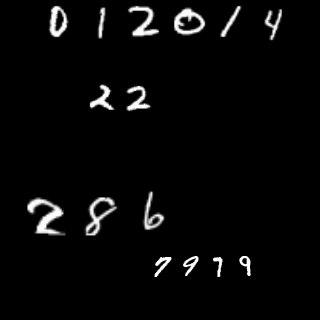 012014
22
286
7979